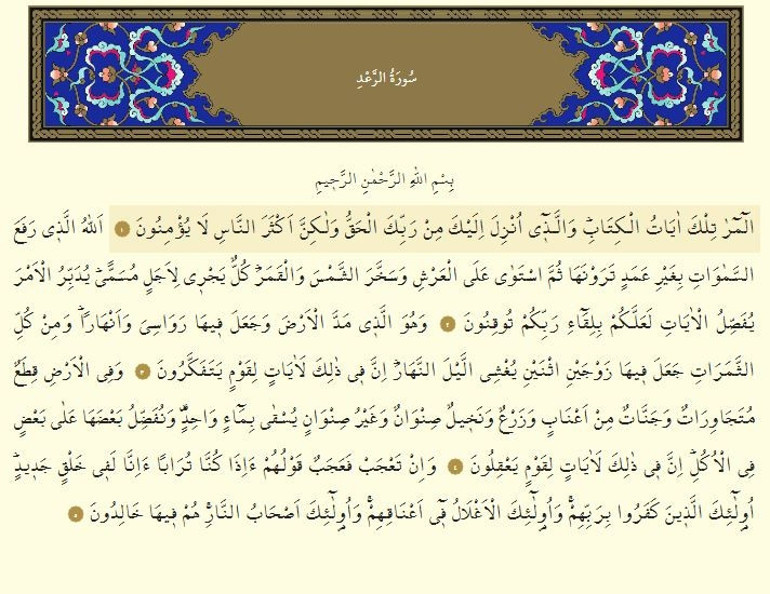 سُورَةُ الرَّعْدِ
بِسْمِ اللّٰهِ الرَّحْمٰنِ الرَّح۪يمِ
الٓمٓرٰ تِلْكَ اٰيَاتُ الْكِتَابِۜ وَالَّذ۪ٓي اُنْزِلَ اِلَيْكَ مِنْ رَبِّكَ الْحَقُّ وَلٰكِنَّ اَكْثَرَ النَّاسِ لَا يُؤْمِنُونَ ١ اَللّٰهُ الَّذ۪ي رَفَعَ
السَّمٰوَاتِ بِغَيْرِ عَمَدٍ تَرَوْنَهَا ثُمَّ اسْتَوٰى عَلَى الْعَرْشِ وَسَخَّرَ الشَّمْسَ وَالْقَمَرَۜ كُلٌّ يَجْر۪ي لِاَجَلٍ مُسَمًّىۜ يُدَبِّرُ الْاَمْرَ
يُفَصِّلُ الْاٰيَاتِ لَعَلَّكُمْ بِلِقَٓاءِ رَبِّكُمْ تُوقِنُونَ ٢ وَهُوَ الَّذ۪ي مَدَّ الْاَرْضَ وَجَعَلَ ف۪يهَا رَوَاسِيَ وَاَنْهَارًاۜ وَمِنْ كُلِّ
الثَّمَرَاتِ جَعَلَ ف۪يهَا زَوْجَيْنِ اثْنَيْنِ يُغْشِي الَّيْلَ النَّهَارَۜ اِنَّ ف۪ي ذٰلِكَ لَاٰيَاتٍ لِقَوْمٍ يَتَفَكَّرُونَ ٣ وَفِي الْاَرْضِ قِطَعٌ
مُتَجَاوِرَاتٌ وَجَنَّاتٌ مِنْ اَعْنَابٍ وَزَرْعٌ وَنَخ۪يلٌ صِنْوَانٌ وَغَيْرُ صِنْوَانٍ يُسْقٰى بِمَٓاءٍ وَاحِدٍ۠ وَنُفَضِّلُ بَعْضَهَا عَلٰى بَعْضٍ
فِي الْاُكُلِۜ اِنَّ ف۪ي ذٰلِكَ لَاٰيَاتٍ لِقَوْمٍ يَعْقِلُونَ ٤ وَاِنْ تَعْجَبْ فَعَجَبٌ قَوْلُهُمْ ءَاِذَا كُنَّا تُرَابًا ءَاِنَّا لَف۪ي خَلْقٍ جَد۪يدٍۜ
اُو۬لٰٓئِكَ الَّذ۪ينَ كَفَرُوا بِرَبِّهِمْۚ وَاُو۬لٰٓئِكَ الْاَغْلَالُ ف۪ٓي اَعْنَاقِهِمْۚ وَاُو۬لٰٓئِكَ اَصْحَابُ النَّارِۚ هُمْ ف۪يهَا خَالِدُونَ ٥